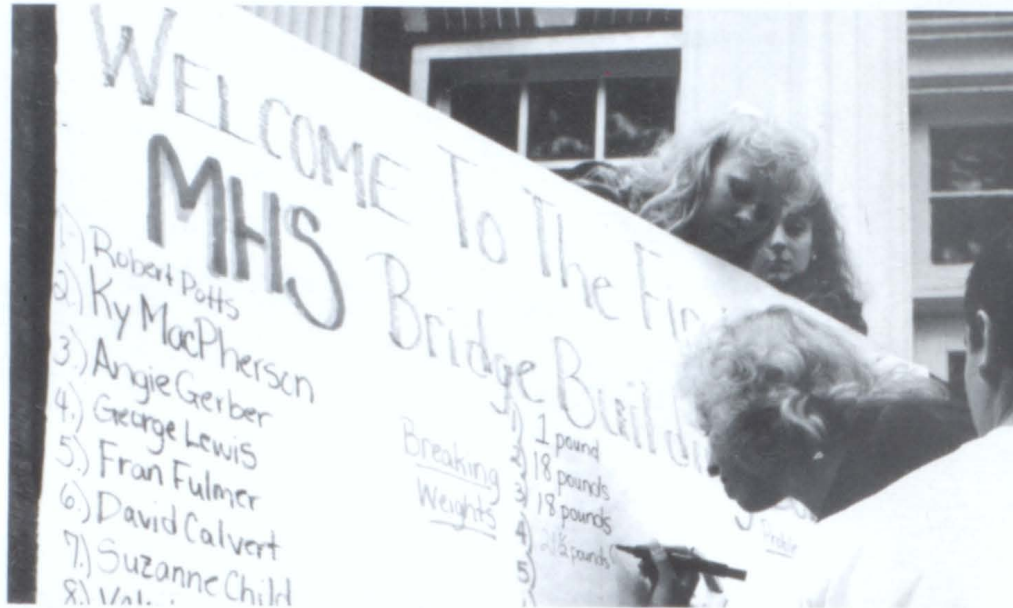 WELCOME To The
MHS Bridge
1.) Robert Potts
2.) Ky MacPherson
3.) Angie Gerber
4.) George Lewis
5.) Fran Fulmer
6.) David Calvert
7.) Suzanne Child
8.)
Breaking
Weights
1) 1 pound
2) 18 pounds
3) 18 pounds
4) 21½ pounds
5)